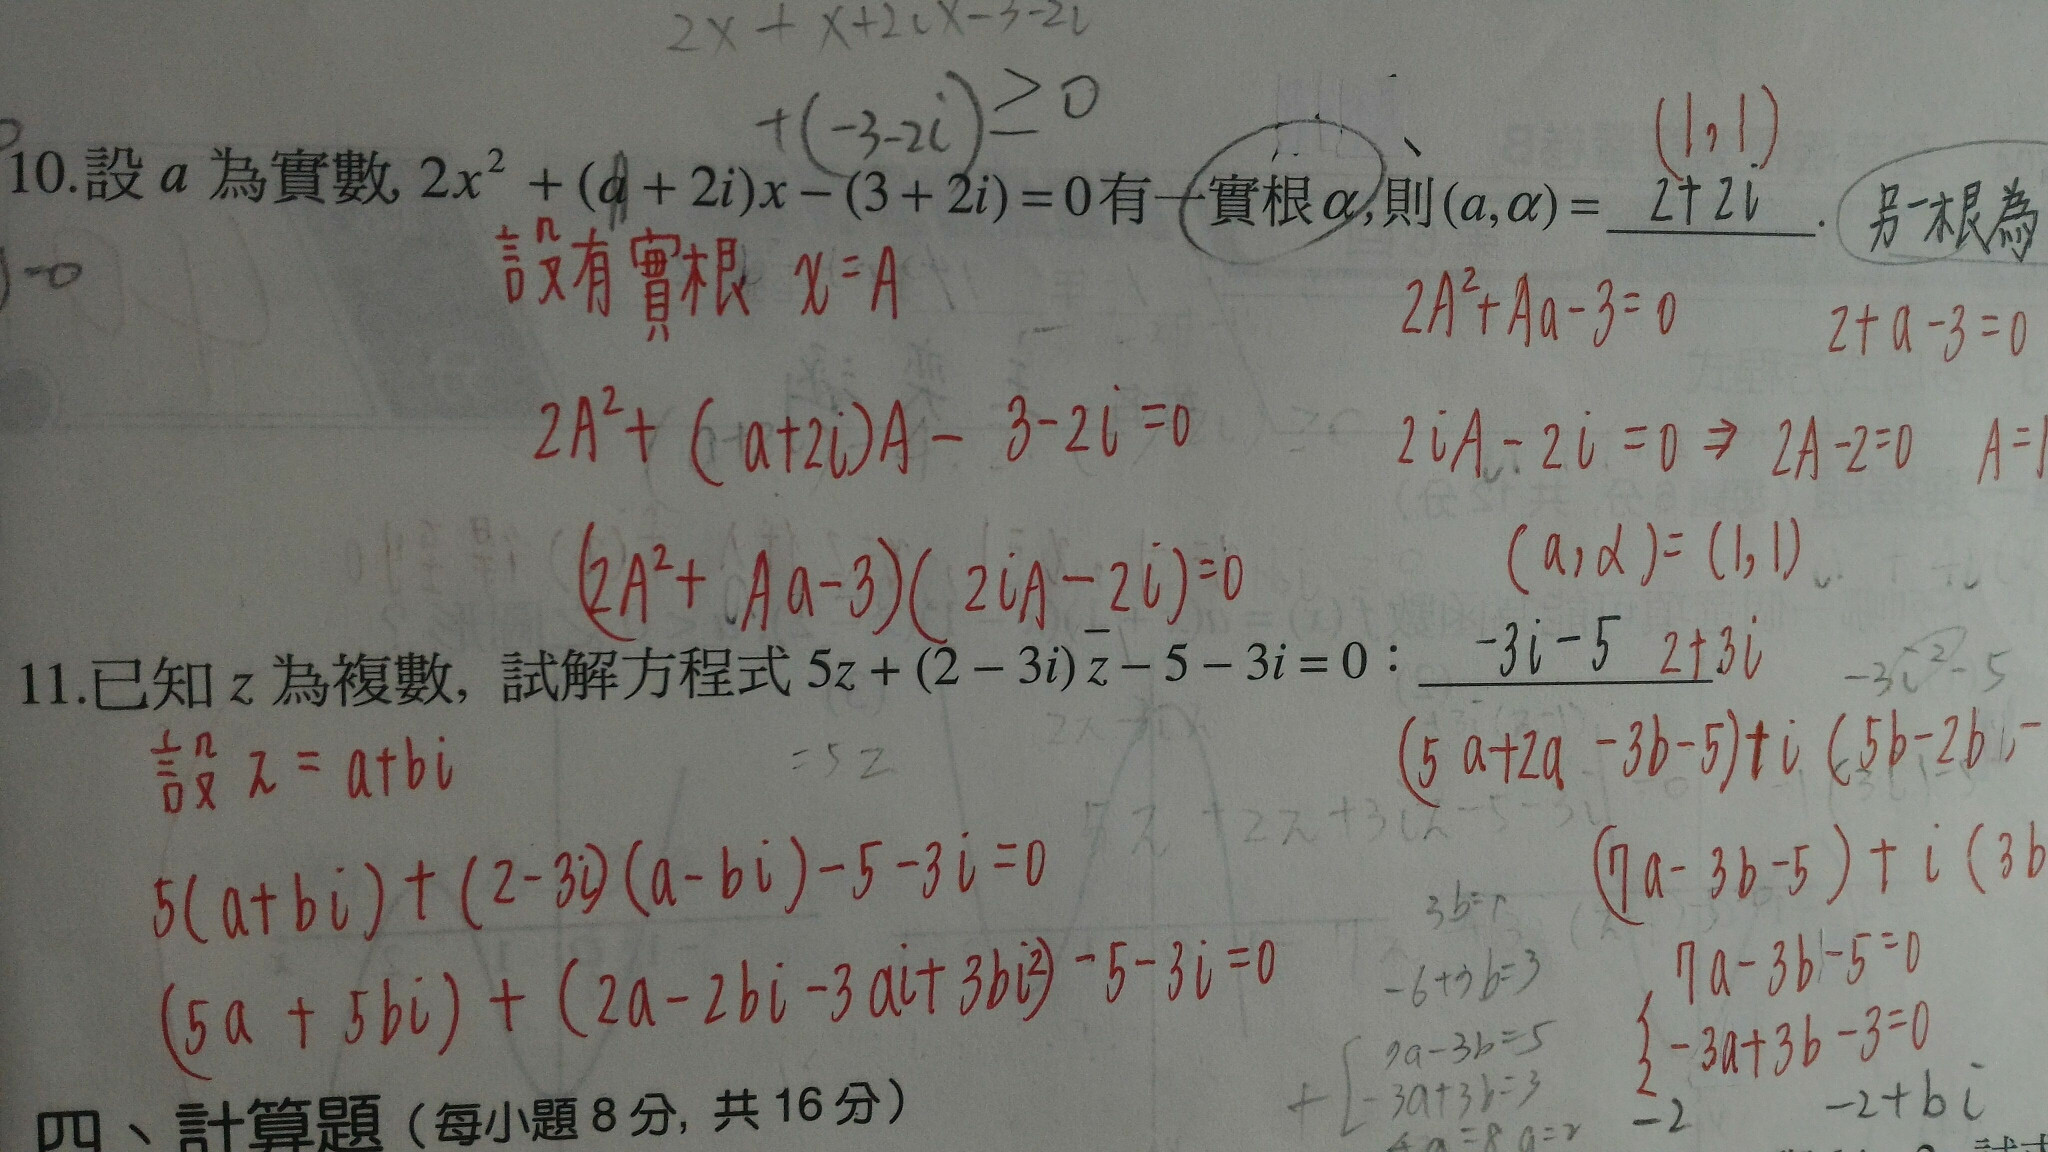 2x + x+2ix-3-2i
+(-3-2i) ≥ 0
(1,1)
10.設 a 為實數, 2x² + (a + 2i)x − (3 + 2i) = 0 有一實根 α, 則 (a, α) = 2+2i . 另一根為
設有實根 x = A
2A²+Aa-3=0 2+a-3=0
2A²+ (a+2i)A - 3-2i=0
2iA-2i=0 ⇒ 2A-2=0 A=1
(2A²+ Aa-3)(2iA-2i)=0
(a,α)=(1,1)
11.已知 z 為複數, 試解方程式 5z + (2 − 3i) z̄ − 5 − 3i = 0 : -3i-5 2+3i
-3i-2-5
設 z = a+bi
=5z
(5a+2a-3b-5)+i(5b-2b
5z+2z+3iz-5-3i
5(a+bi)+(2-3i)(a-bi)-5-3i=0
(7a-3b-5)+i(3b
3b=
-6+3b=3
7a-3b-5=0
(5a + 5bi) + (2a-2bi-3ai+3bi²)-5-3i=0
-3a+3b-3=0
7a-3b=5
+ -3a+3b=3
4a=8 a=2
-2 -2+bi
四、計算題 (每小題 8 分, 共 16 分)